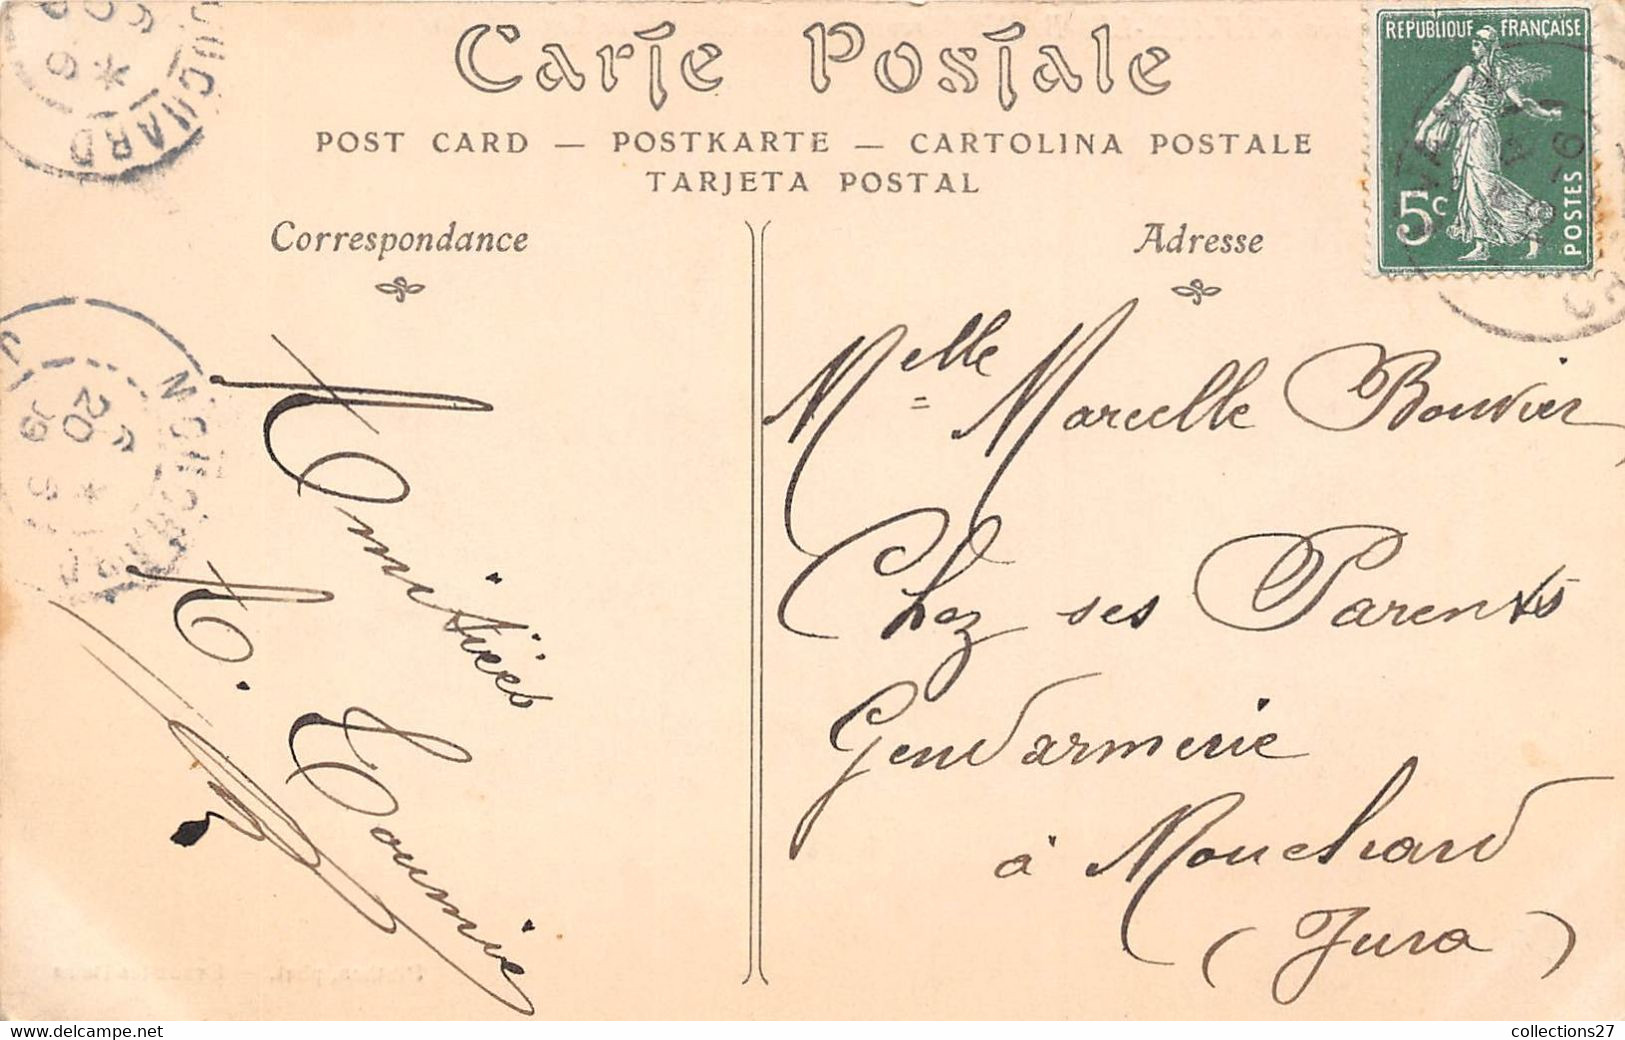 Carte Postale
POST CARD — POSTKARTE — CARTOLINA POSTALE
TARJETA POSTAL
Correspondance
Adresse
REPUBLIQUE FRANÇAISE
5c
POSTES
MOUCHARD
20
Amitiées
A. Tournier
Melle Marcelle Bouvier
Chez ses Parents
Gendarmerie
à Mouchard
(Jura)
collections27